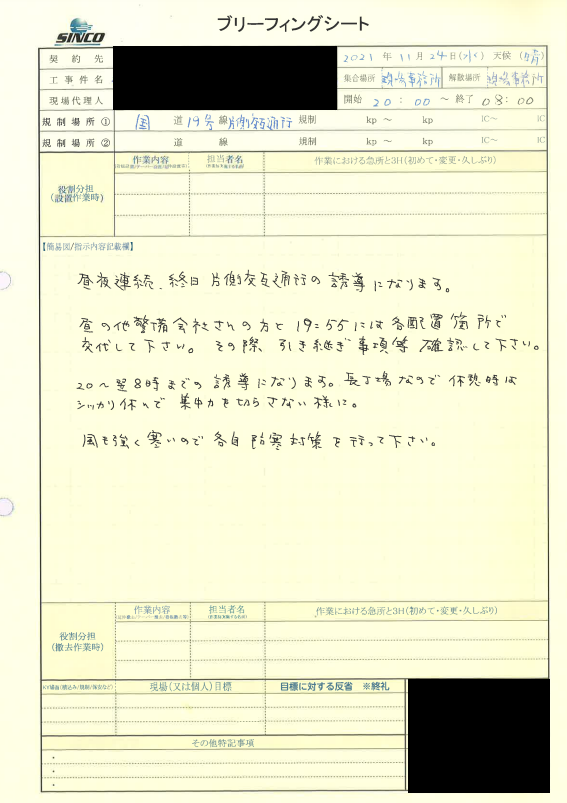 SINCO
ブリーフィングシート
契約先
2021 年 11 月 24 日(水) 天候 (晴)
工事件名
集合場所 現場事務所 解散場所 現場事務所
現場代理人
開始 20 : 00 ～ 終了 08 : 00
規制場所① 国 道 19号 線 片側交互通行 規制 kp ～ kp IC～ IC
規制場所② 道 線 規制 kp ～ kp IC～ IC
役割分担
(設置作業時)
作業内容 担当者名 作業における急所と3H(初めて・変更・久しぶり)
【簡易図/指示内容記載欄】
昼夜連続、終日 片側交互通行の誘導になります。
昼の他警備会社さんの方と 19:55には各配置箇所で
交代して下さい。 その際、引き継ぎ事項等 確認して下さい。
20～翌8時までの誘導になります。長丁場なので 休憩時は
シッカリ休んで 集中力を切らさない様に。
風も強く寒いので 各自 防寒対策を行って下さい。
役割分担
(撤去作業時)
作業内容 担当者名 作業における急所と3H(初めて・変更・久しぶり)
現場(又は個人)目標 目標に対する反省 ※終礼
その他特記事項
・
・
・